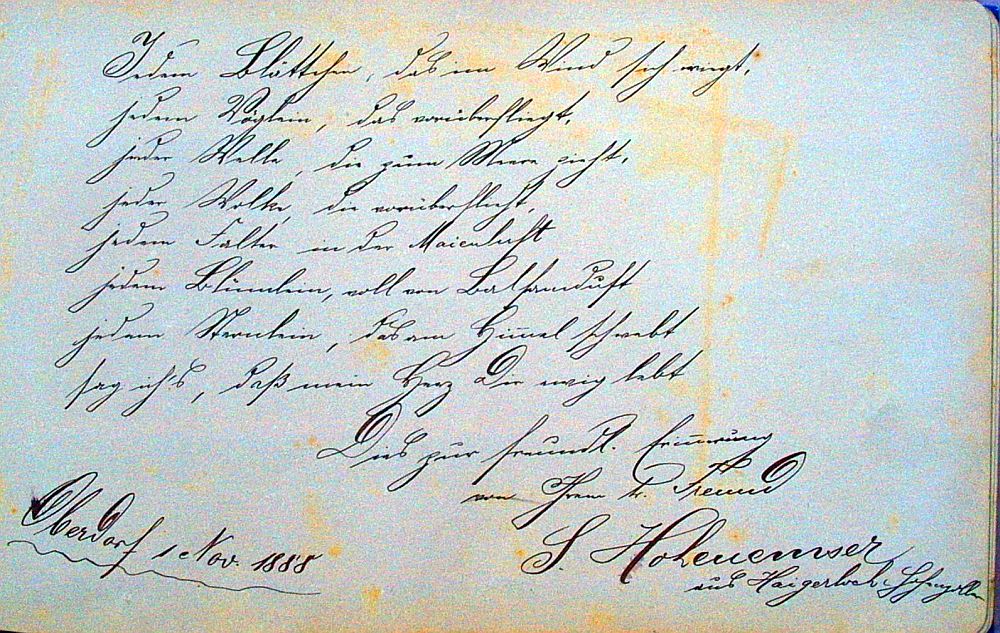 Jedem Blättchen, das im Wind sich wiegt,
jedem Vöglein, das vorüberfliegt,
jeder Welle, die zum Meere zieht,
jeder Wolke, die vorüberflieht,
jedem Falter in der Maienluft
jedem Blümlein, voll von Balsamduft
jedem Sternlein, das am Himmel schwebt
sag ich's, daß mein Herz Dir ewig lebt
Dies zur freundl. Erinnerung
von Ihrem tr. Freund
S. Hohenemser
aus Haigerloch
Oberdorf 1 Nov. 1888